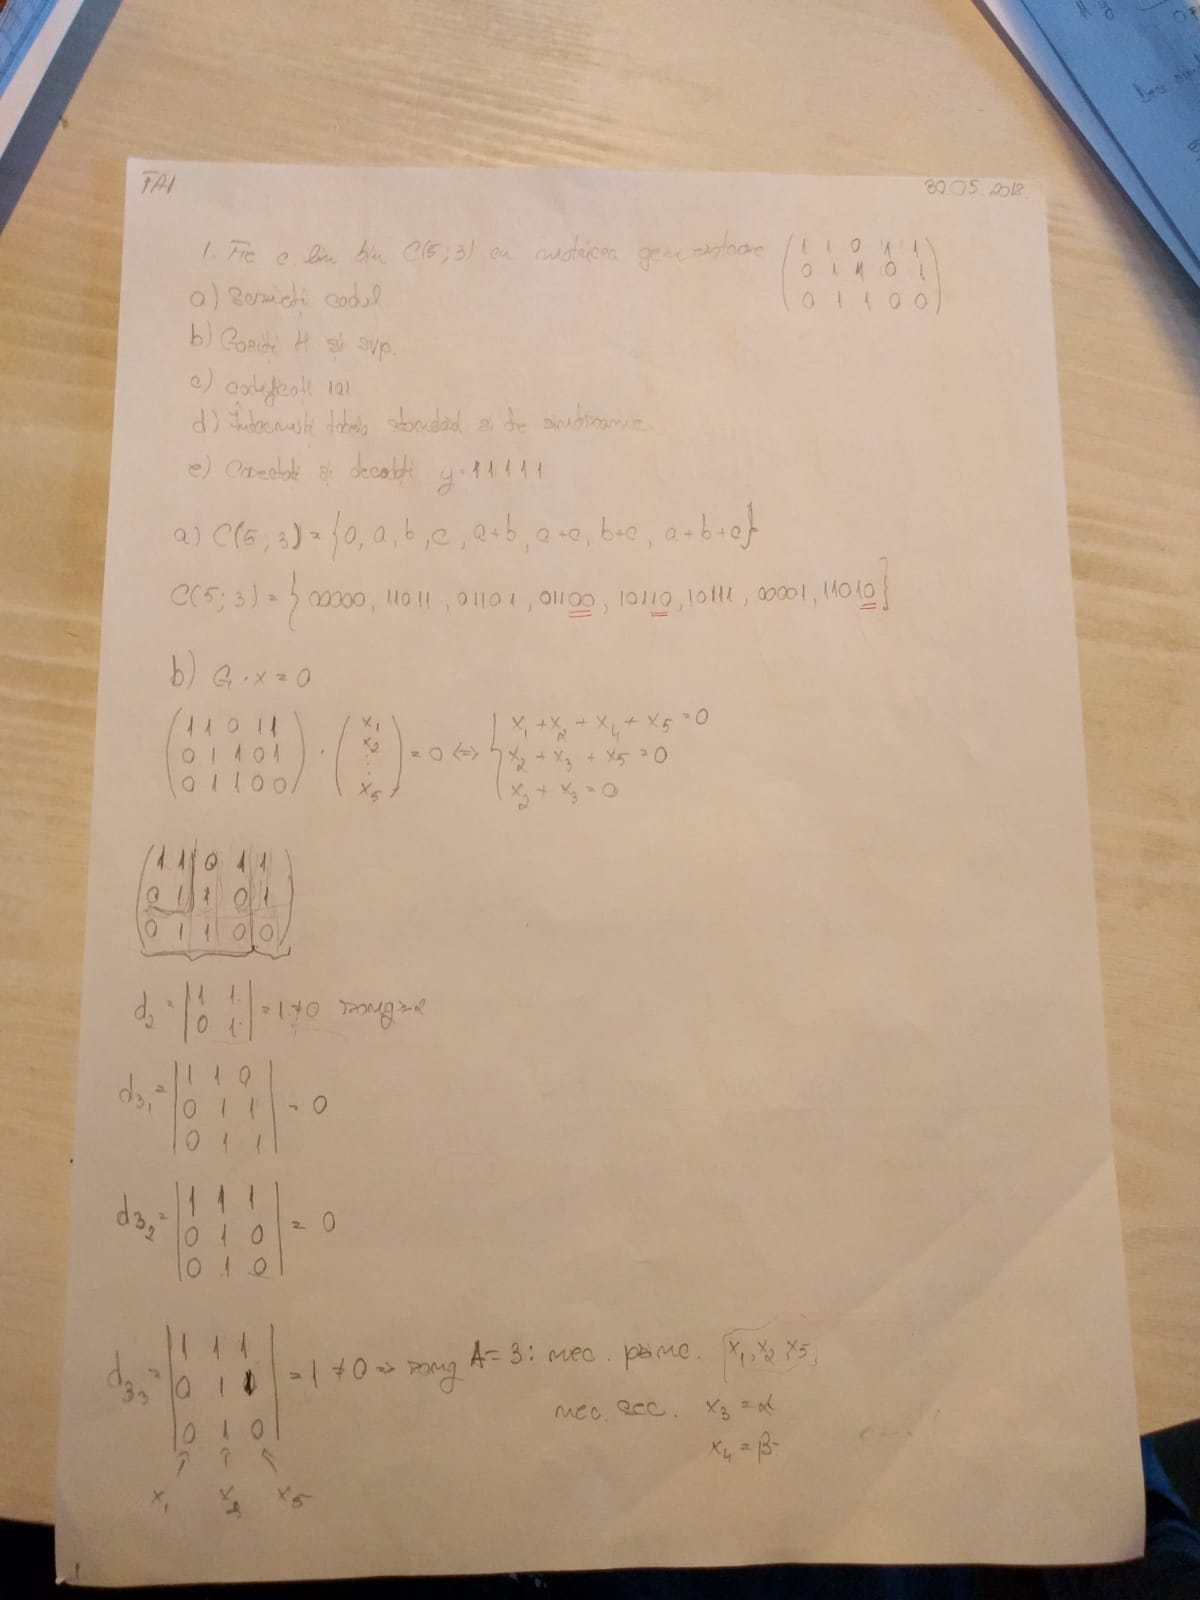 TAI 30.05.2018
1. Fie c lin bin C(5;3) cu matricea generatoare (1 1 0 1 1
0 1 1 0 1
0 1 1 0 0)
a) Scrieți codul
b) Găsiți H și svp.
c) codificați 101
d) Întocmiți tabela standard și de sindroame
e) Corectați și decodați y=11111
a) C(5;3) = {0, a, b, c, a+b, a+c, b+c, a+b+c}
C(5;3) = {00000, 11011, 01101, 01100, 10110, 10111, 00001, 11010}
b) G·x=0
(1 1 0 1 1
0 1 1 0 1
0 1 1 0 0) · (x1
x2
⋮
x5) = 0 <=> { x1 + x2 + x4 + x5 = 0
x2 + x3 + x5 = 0
x2 + x3 = 0
(1 1 0 1 1
0 1 1 0 1
0 1 1 0 0)
d2 = |1 1
0 1| = 1≠0 rang=2
d31 = |1 1 0
0 1 1
0 1 1| = 0
d32 = |1 1 1
0 1 0
0 1 0| = 0
d33 = |1 1 1
0 1 1
0 1 0| = 1 ≠ 0 => rang A=3: nec. princ. x1, x2, x5
nec. sec. x3 = α
x4 = β
x1 x2 x5